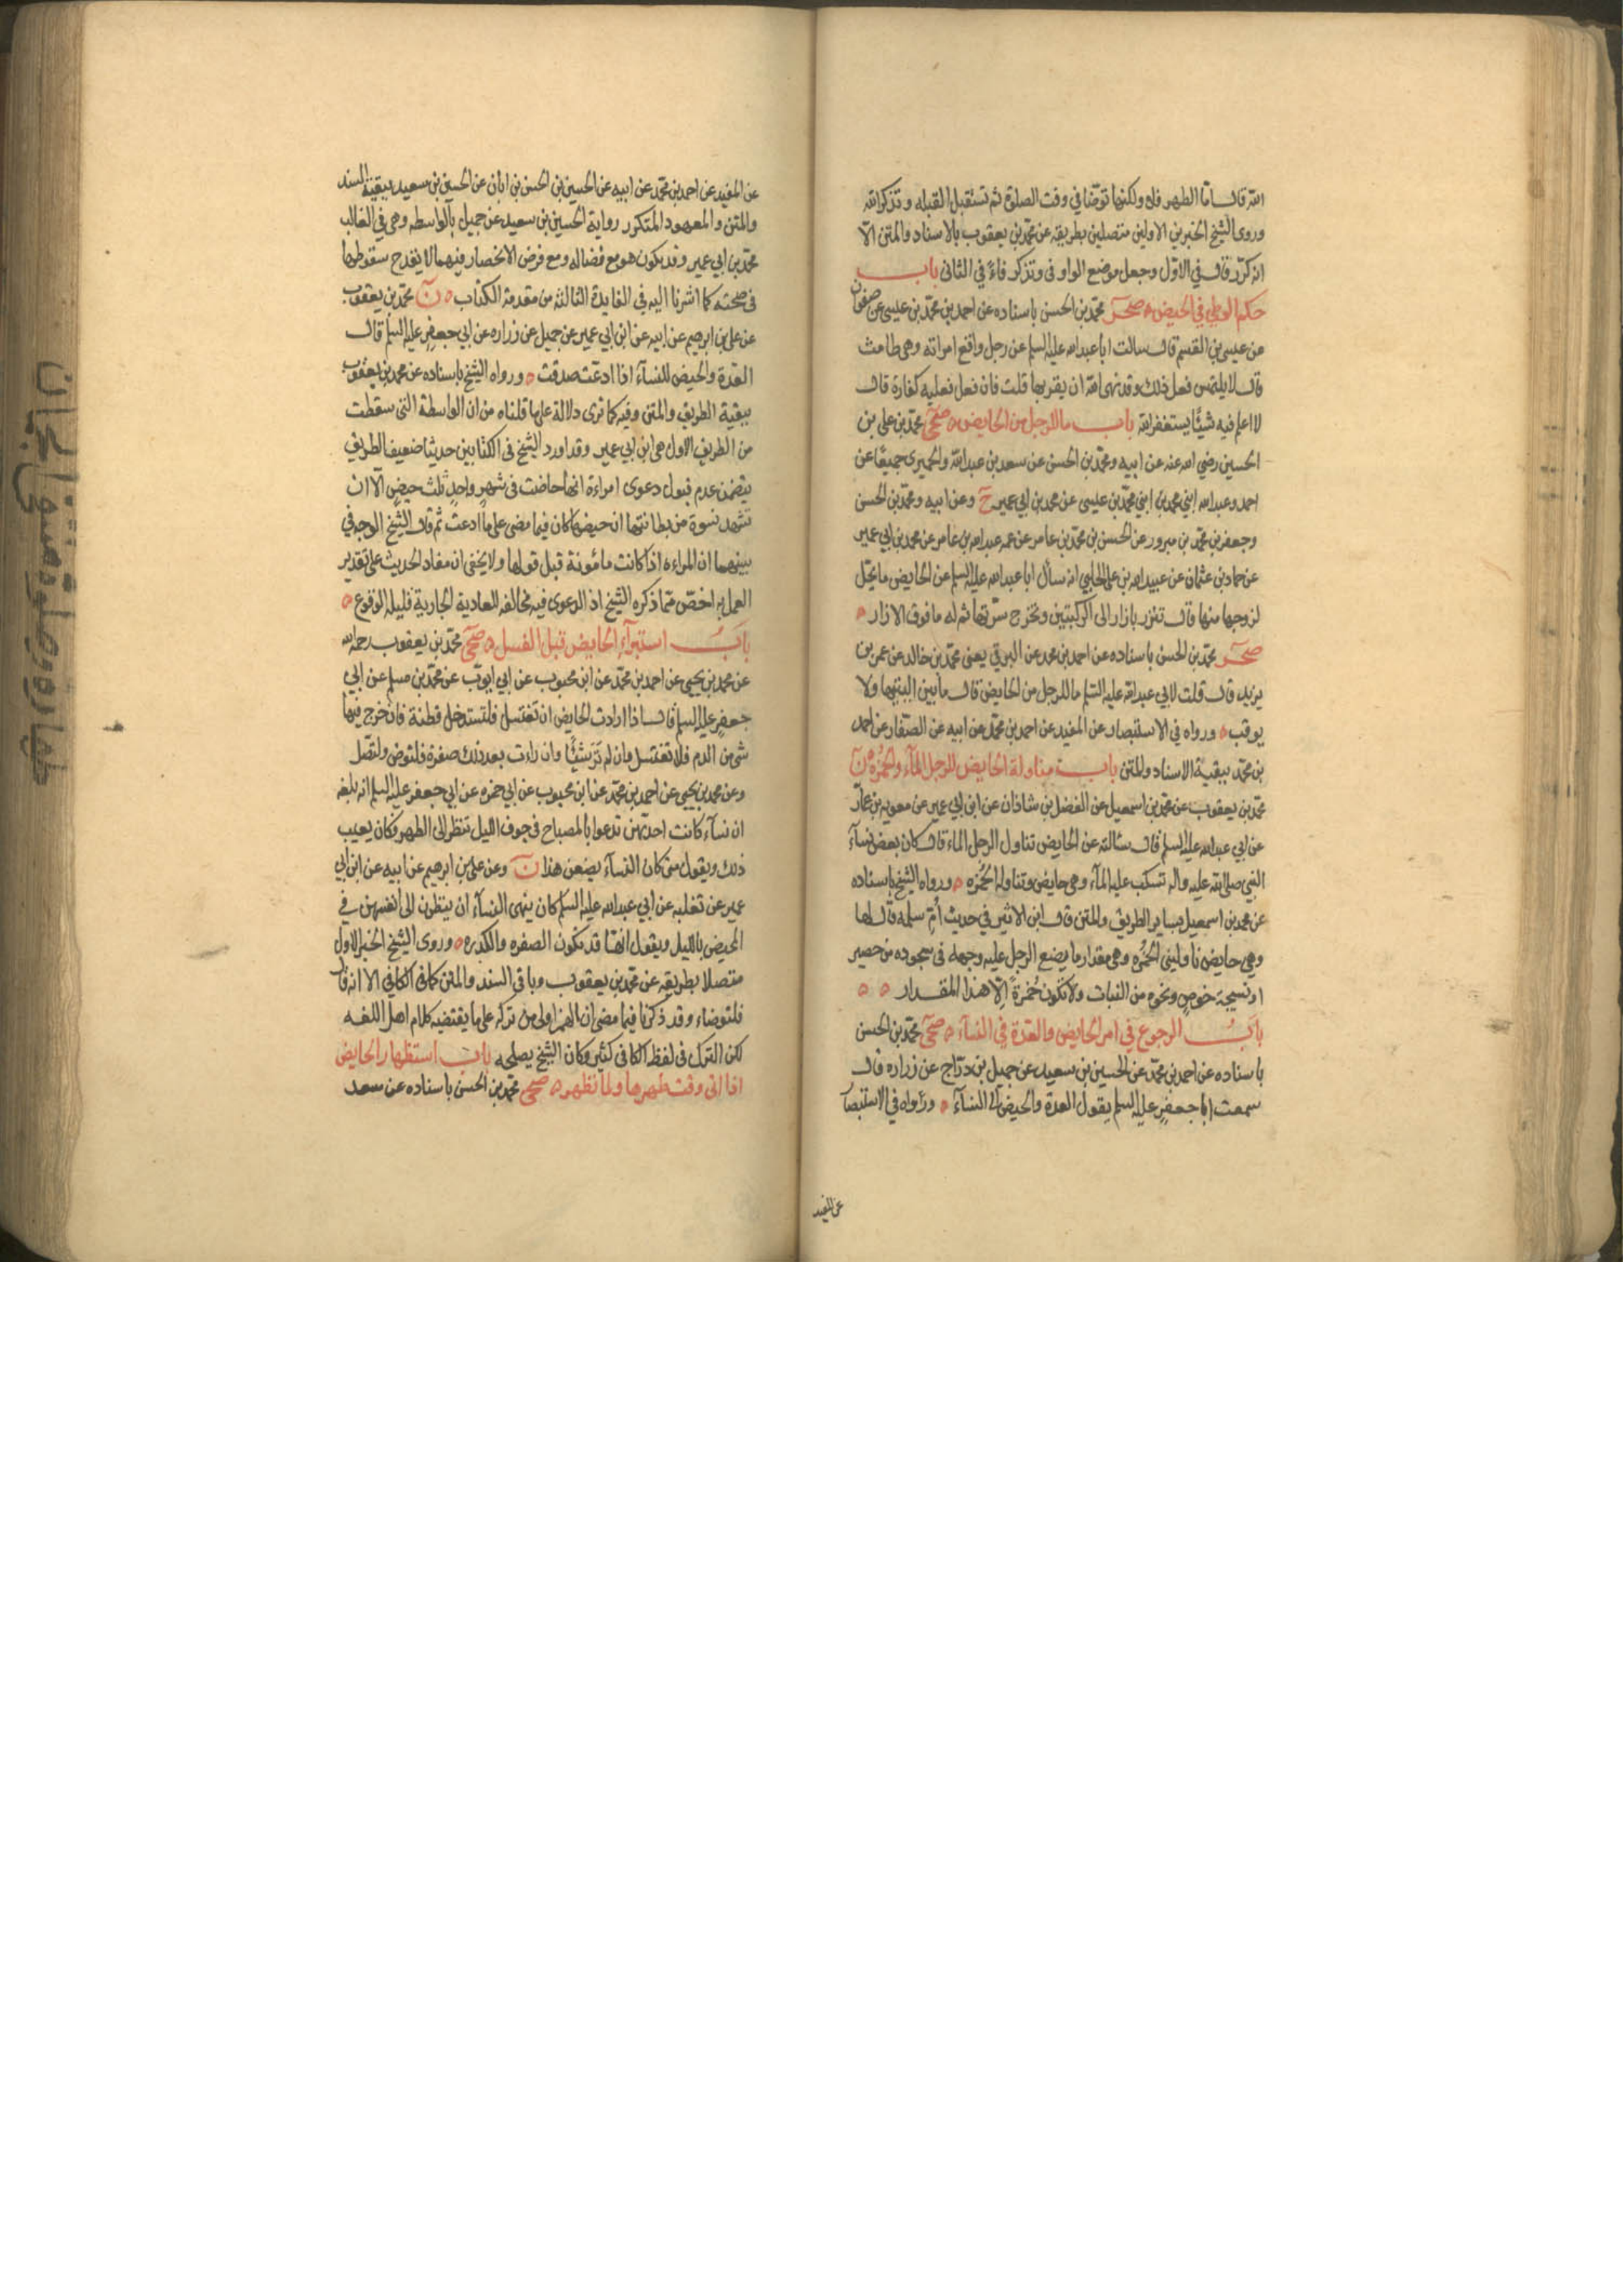 الله قال اما الطهر فلا ولكنها توضأ في وقت الصلوة ثم تستقبل القبله وتذكر الله
وروى الشيخ الخبرين الاولين متصلين بطريقه عن محمد بن يعقوب بالاسناد والمتن الا
انه كرر قال في الاول وجعل موضع الواو في وتذكر فاءً في الثاني باب
حكم الوطي في الحيض صحر محمد بن الحسن باسناده عن احمد بن محمد بن عيسى عن صفوان
عن عيص بن القسم قال سالت ابا عبد الله عليه السلم عن رجل واقع امراته وهي طامث
قال لا يلتمس فعل ذلك وقد نهى الله ان يقربها قلت فان فعل فعليه كفارة قال
لا اعلم فيه شيئًا يستغفر الله باب ما للرجل من الحايض صحى محمد بن علي بن
الحسين رضي الله عنه عن ابيه ومحمد بن الحسن عن سعد بن عبد الله والحميري جميعًا عن
احمد وعبد الله ابني محمد بن عيسى عن محمد بن ابي عمير ح وعن ابيه ومحمد بن الحسن
وجعفر بن محمد بن مسرور عن الحسين بن محمد بن عامر عن عمه عبد الله بن عامر عن محمد بن ابي عمير
عن حماد بن عثمان عن عبيد الله بن على الحلبي انه سأل ابا عبد الله عليه السلم عن الحايض ما يحل
لزوجها منها قال تتزر بازار الى الركبتين وتخرج سرتها ثم له ما فوق الازار
صحر محمد بن الحسن باسناده عن احمد بن محمد عن البرقي يعنى محمد بن خالد عن عمر بن
يزيد قال قلت لابي عبد الله عليه السلم ما للرجل من الحايض قال ما بين اليتيها ولا
يوقب ورواه في الاستبصار عن المفيد عن احمد بن محمد عن ابيه عن الصفار عن احمد
بن محمد ببقية الاسناد والمتن باب مناولة الحايض للرجل المآء والخُمرة ن
محمد بن يعقوب عن محمد بن اسمعيل عن الفضل بن شاذان عن ابن ابي عمير عن معوية بن عمار
عن ابي عبد الله عليه السلم قال سئالته عن الحايض تناول الرجل الماء قال كان بعض نسآء
النبي صلى الله عليه واله تسكب عليه المآء وهي حايض وتناوله الخُمرة ورواه الشيخ باسناده
عن محمد بن اسمعيل بساير الطريق والمتن قال ابن الاثير في حديث أم سلمه قال لها
وهي حايض ناوليني الخُمره وهي مقدار ما يضع الرجل عليه وجهه في سجوده من حصير
او نسيجة خوص ونحوه من النبات ولا تكون خُمرةً الا هذا المقدار
بابُ الرجوع في امر الحايض والعدة في النسآء صحى محمد بن الحسن
باسناده عن احمد بن محمد عن الحسين بن سعيد عن جميل بن دراج عن زراره قال
سمعت ابا جعفر عليه السلم يقول العدة والحيض الى النسآء ورواه في الاستبصار
عن المفيد
عن المفيد عن احمد بن محمد عن ابيه عن الحسين بن الحسن بن ابان عن الحسين بن سعيد ببقية السند
والمتن والمعهود المتكرر رواية الحسين بن سعيد عن جميل بالواسطه وهي في الغالب
محمد بن ابي عمير وقد يكون هو مع فضاله ومع فرض الانحصار فيهما لا يقدح سقوطها
في صحته كما اشرنا اليه في الفايدة الثالثه من مقدمة الكتاب ن محمد بن يعقوب
عن علي بن ابرهيم عن ابيه عن ابن ابي عمير عن جميل عن زراره عن ابي جعفر عليه السلم قال
العدة والحيض للنسآء اذا ادعت صدقت ورواه الشيخ باسناده عن محمد بن يعقوب
ببقية الطريق والمتن وفيه كما ترى دلالة على ما قلناه من ان الواسطة التي سقطت
من الطريق الاول هي ابن ابي عمير وقد اورد الشيخ في الكتابين حديثا ضعيف الطريق
يتضمن عدم قبول دعوى امراءة انها حاضت في شهر واحد ثلث حيض الا ان
تشهد نسوة من بطانتها ان حيضها كان فيما مضى على ما ادعت ثم قال الشيخ الوجه في
بينهما ان المراءه اذا كانت مأمونة قبل قولها ولا يخفى ان مفاد الحديث على تقدير
العمل به اخص مما ذكره الشيخ اذ الدعوى فيه مخالفه للعادية الجارية قليله الوقوع
بابُ استبرآء الحايض قبل الغسل صحى محمد بن يعقوب رحمه الله
عن محمد بن يحيى عن احمد بن محمد عن ابن محبوب عن ابي ايوب عن محمد بن مسلم عن ابي
جعفر عليه السلم قال اذا ارادت الحايض ان تغتسل فلتستدخل قطنة فان خرج فيها
شئ من الدم فلا تغتسل وان لم تَرَ شيئًا وان راءت بعد ذلك صفرة فلتوض ولتصل
وعن محمد بن يحيى عن احمد بن محمد عن ابن محبوب عن ابي حمزه عن ابي جعفر عليه السلم انه بلغه
ان نسآء كانت احديهن تدعوا بالمصباح في جوف الليل تنظر الى الطهر وكان يعيب
ذلك ويقول متى كان النسآء يضعن هذا ن وعن علي بن ابرهيم عن ابيه عن ابن ابي
عمير عن ثعلبه عن ابي عبد الله عليه السلم كان ينهى النسآء ان ينظرن الى انفسهن في
المحيض بالليل ويقول انها قد تكون الصفره والكدره وروى الشيخ الخبر الاول
متصلا بطريقه عن محمد بن يعقوب وباقي السند والمتن كما في الكافي الا انه قال
فلتوضاء وقد ذكرنا فيما مضى ان الهمز اولى من تركه على ما يقتضيه كلام اهل اللغه
لكن الترك في لفظ الكافي كثير وكان الشيخ يصلحه باب استظهار الحايض
اذا اتى وقت طهرها ولما تظهر صحى محمد بن الحسن باسناده عن سعد